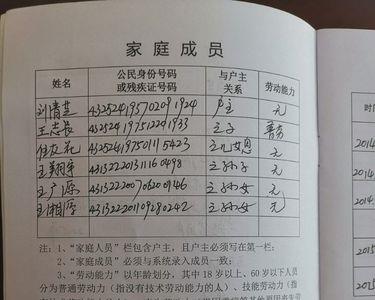 家庭成员
姓名 公民身份号码或残疾证号码 与户主关系 劳动能力
刘清莲 432524195702091924 户主 无
王志长 432524197512291933 之子 普劳
432524197501115423 之儿媳 无
王翔宇 431322201311160498 之孙子 无
王广源 431322200706200146 之孙女 无
王湘莲 431322201109280242 之孙女 无
注：1、“家庭人员”栏包含户主，且户主必须写在第一栏；
2、“家庭成员”必须与系统录入成员一致；
3、“劳动能力”以年龄划分，其中 18 岁以上、60 岁以下人员
分为普通劳动力（指没有技术劳动能力的人）、技能劳动力（指
2014
2014
2015
2015